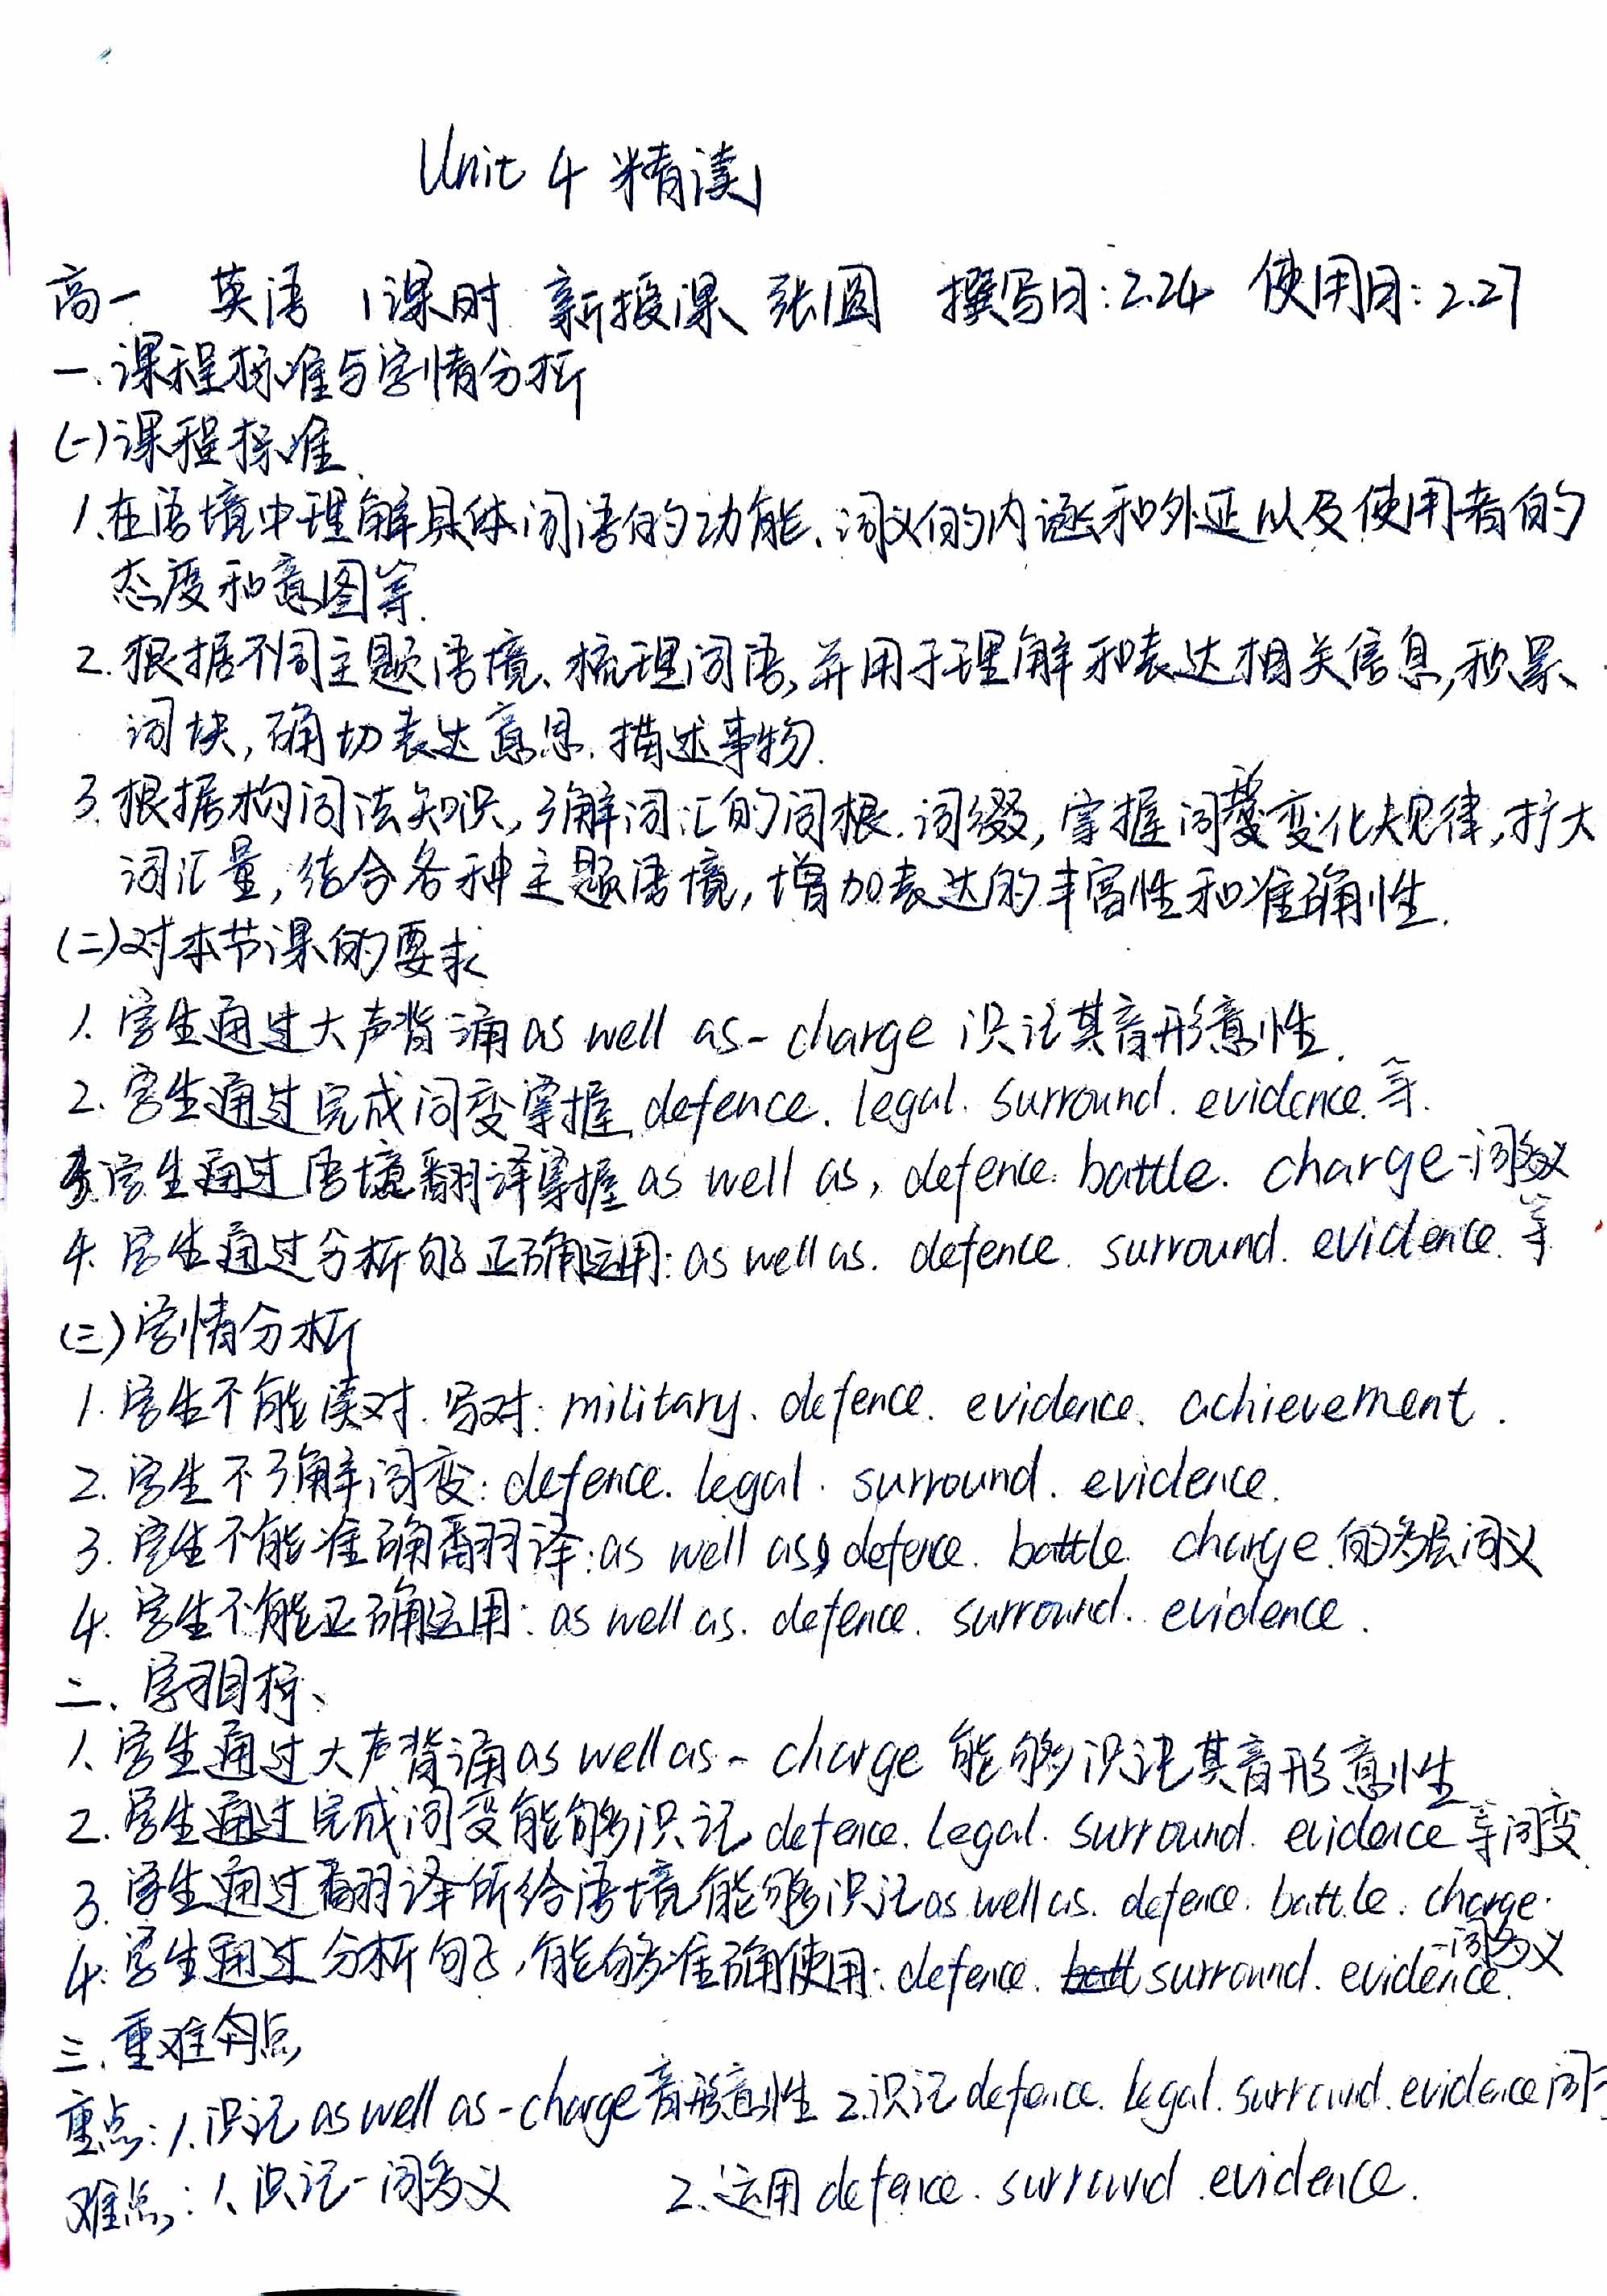 Unit 4 精读
高一 英语 1课时 新授课 张圆 撰写日:2.24 使用日:2.27
一.课程标准与学情分析
(一)课程标准.
1.在语境中理解具体词语的功能、词义的内涵和外延以及使用者的
态度和意图等.
2.根据不同主题语境、梳理词语,并用于理解和表达相关信息,积累
词块,确切表达意思.描述事物.
3.根据构词法知识,了解词汇的词根.词缀,掌握词变变化规律,扩大
词汇量,结合各种主题语境,增加表达的丰富性和准确性.
(二)对本节课的要求
1.学生通过大声背诵as well as-charge 识记其音形意性.
2.学生通过完成词变掌握 defence. legal. surround. evidence.等.
3.学生通过语境翻译掌握 as well as, defence. battle. charge一词多义
等
4.学生通过分析句子正确运用:as well as. defence. surround. evidence.
(三)学情分析
1.学生不能读对.写对:military、defence. evidence. achievement.
2.学生不了解词变:defence. legal. surround. evidence.
3.学生不能准确翻译:as well as, defence. battle. charge.的多层词义
4.学生不能正确运用:as well as. defence. surround. evidence.
二、学习目标、
1、学生通过大声背诵as well as-charge 能够识记其音形意性
2.学生通过完成词变能够识记 defence. legal. surround. evidence等词变
3.学生通过翻译所给语境能够识记as well as. defence. battle. charge.
一词多义
4.学生通过分析句子,能够准确使用:defence. surround. evidence.
三.重难点
重点:1.识记as well as-charge音形意性 2.识记defence. legal. surround. evidence词
难点:1、识记一词多义 2.运用defence. surround.evidence.